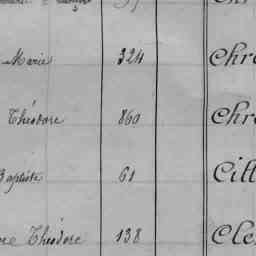 Marie 324 Chr
Théodore 860 Chr
Baptiste 61 Cit
Théodore 138 Cle